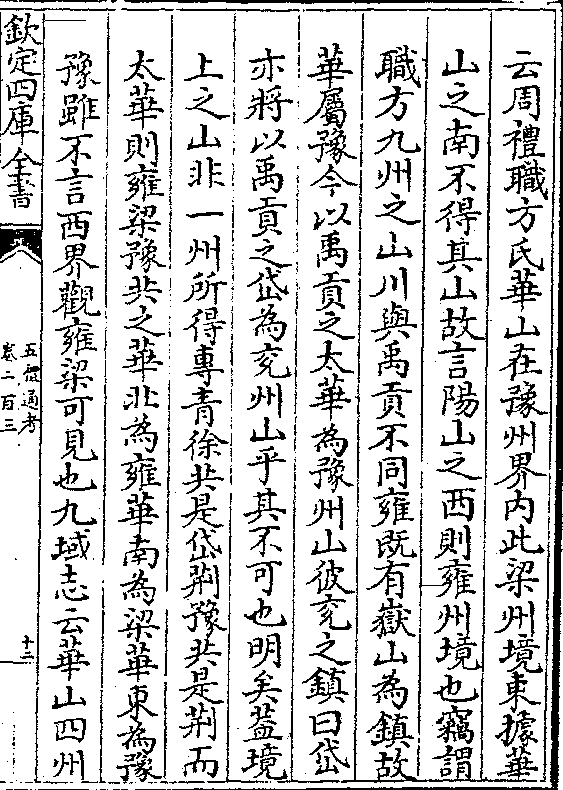 云周禮職方氏華山在豫州界内此梁州境東據華
山之南不得其山故言陽山之西則雍州境也竊謂
職方九州之山川與禹貢不同雍既有嶽山為鎮故
華屬豫今以禹貢之太華為豫州山彼兖之鎮曰岱
亦將以禹貢之岱為兖州山乎其不可也明矣蓋境
上之山非一州所得專青徐共是岱荆豫共是荆而
太華則雍梁豫共之華北為雍華南為梁華東為豫
豫雖不言西界觀雍梁可見也九域志云華山四州
欽定四庫全書
五禮通考
卷二百三
十二